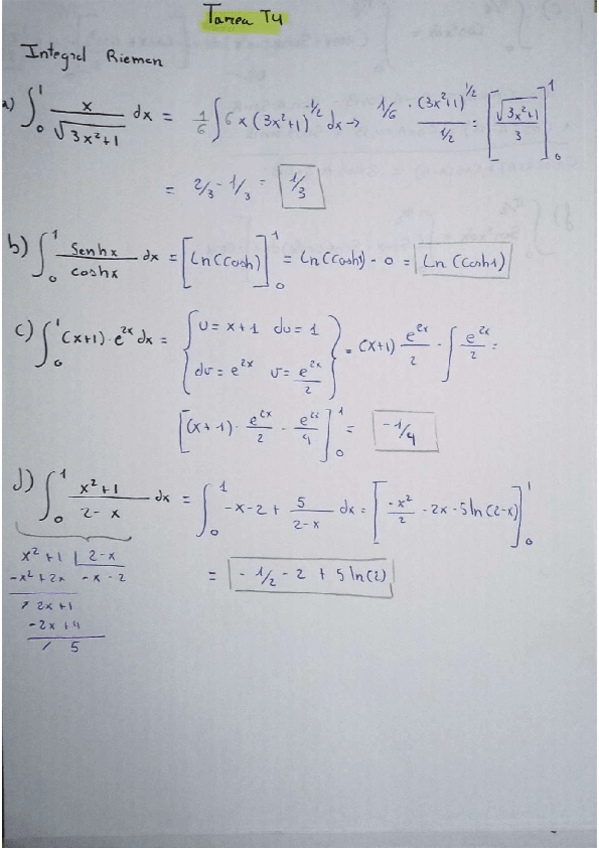 Tarea T4
Integral Riemen
a) ∫₀¹ x/√(3x²+1) dx = 1/6 ∫ 6x(3x²+1)^(-1/2) dx → 1/6 · (3x²+1)^(1/2) / (1/2) = [√(3x²+1)/3]₀¹
= 2/3 - 1/3 = 1/3
b) ∫₀¹ Senhx/coshx dx = [Ln(Cosh)]₀¹ = Ln(Cosh1) - 0 = Ln(Cosh1)
c) ∫₀¹ (x+1)·e^(2x) dx = { U = x+1 du = 1
dv = e^(2x) v = e^(2x)/2 } = (x+1) e^(2x)/2 - ∫ e^(2x)/2 =
[(x+1)· e^(2x)/2 - e^(2x)/4]₀¹ = -1/4
d) ∫₀¹ (x²+1)/(2-x) dx = ∫₀¹ -x-2+ 5/(2-x) dx = [-x²/2 - 2x - 5ln(2-x)]₀¹
x²+1 | 2-x
-x²+2x -x-2
= -1/2 - 2 + 5ln(2)
/ 2x+1
-2x+4
/ 5